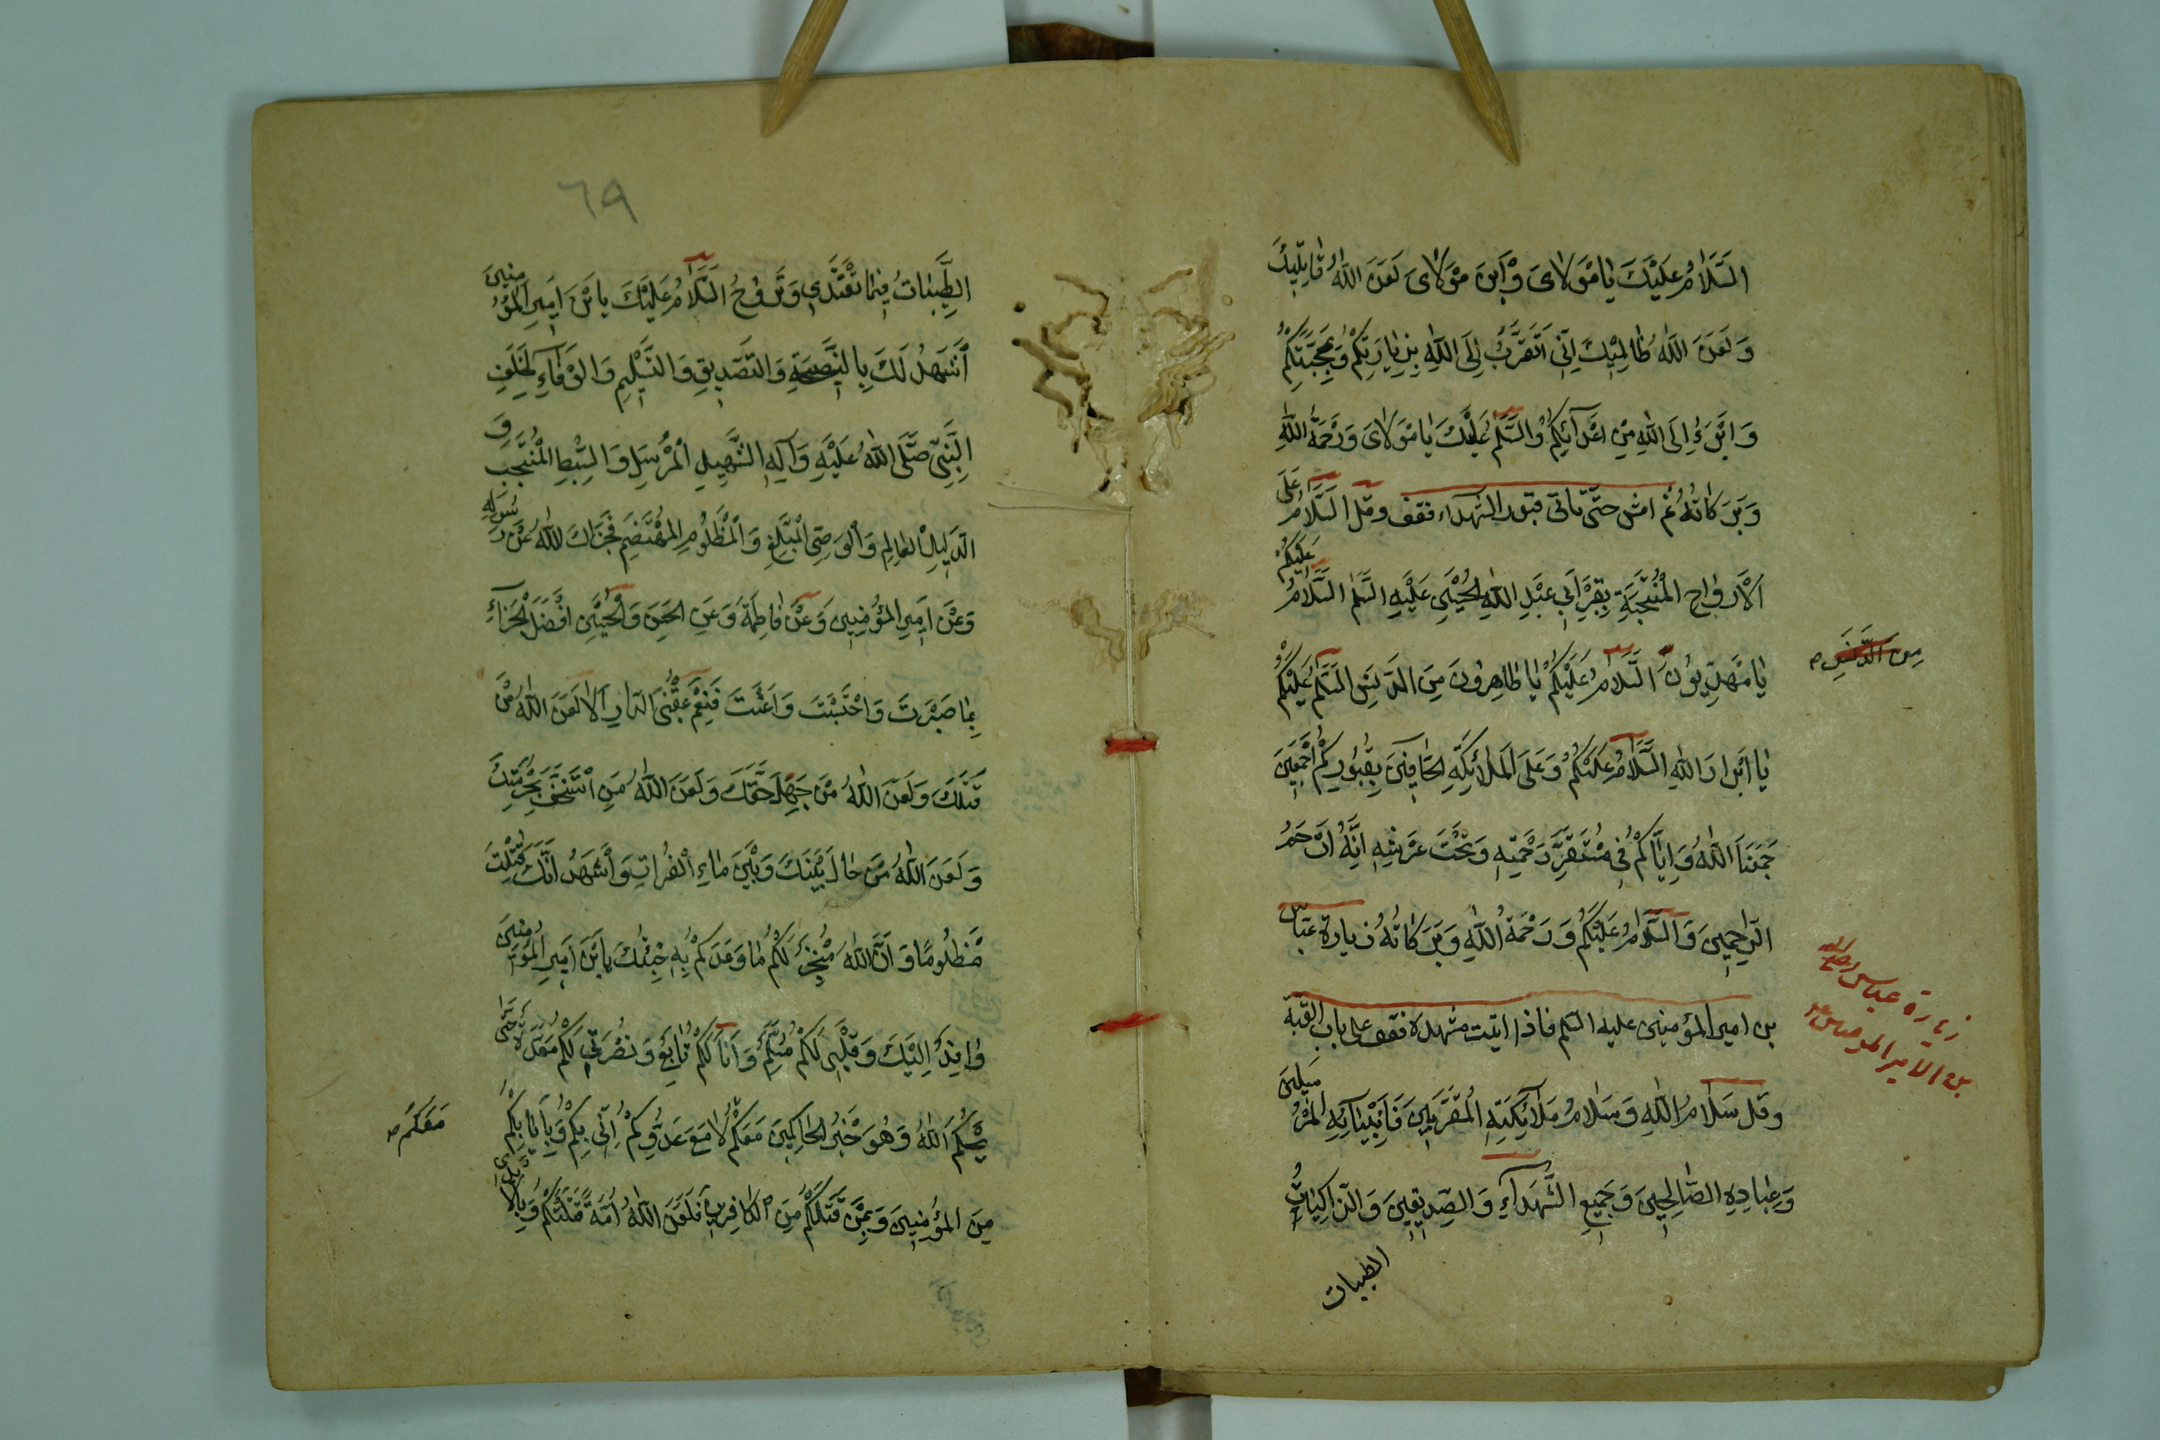 السَّلَامُ عَلَيْكَ يَا مَوْلَايَ وَابْنَ مَوْلَايَ لَعَنَ اللهُ قَاتِلِيكَ
وَلَعَنَ اللهُ ظَالِمِيكَ اِنِّي اَتَقَرَّبُ اِلَى اللهِ بِزِيَارَتِكُمْ وَبِمَحَبَّتِكُمْ
وَاَبْرَءُ اِلَى اللهِ مِنْ اَعْدَآئِكُمْ وَالسَّلَمُ عَلَيْكَ يَا مَوْلَايَ وَرَحْمَةُ اللهِ
وَبَرَكَاتُهُ ثم امش حتى تاتى قبور الشهداء فقف وقل السَّلَامُ عَلَى
الْاَرْوَاحِ الْمُنْتَجَبَةِ بِقَبْرِ اَبِي عَبْدِ اللهِ الْحُسَيْنِ عَلَيْهِ السَّلَم السَّلَامُ عَلَيْكُمْ
يَا مَهْدِيُّونَ السَّلَامُ عَلَيْكُمْ يَا طَاهِرُونَ مِنَ الدَّنَسِ السَّلَمُ عَلَيْكُمْ
مِنَ الدَّنَسِ ص
يَا اَبْرَارَ اللهِ السَّلَامُ عَلَيْكُمْ وَعَلَى الْمَلَائِكَةِ الْحَافِّينَ بِقُبُورِكُمْ اَجْمَعِينَ
جَمَعَنَا اللهُ وَاِيَّاكُمْ فِي مُسْتَقَرِّ رَحْمَتِهِ وَتَحْتَ عَرْشِهِ اِنَّهُ اَرْحَمُ
الرَّاحِمِينَ وَالسَّلَامُ عَلَيْكُمْ وَرَحْمَةُ اللهِ وَبَرَكَاتُهُ زيارة عباس
بن امير المؤمنين عليه السلم فاذا اتيت مشهده فقف على باب القبة
زيارة عباس
بن الامير المومنين
وقل سَلَامُ اللهِ وَسَلَامُ مَلَآئِكَتِهِ الْمُقَرَّبِينَ وَاَنْبِيَآئِهِ الْمُرْسَلِينَ
وَعِبَادِهِ الصَّالِحِينَ وَجَمِيعِ الشُّهَدَآءِ وَالصِّدِّيقِينَ وَالزَّاكِيَاتُ
الطيبات
٦٩
الطَّيِّبَاتُ فِيمَا تَغْتَدِي وَتَرُوحُ السَّلَامُ عَلَيْكَ يَا بْنَ اَمِيرِ الْمُؤْمِنِينَ
اَشْهَدُ لَكَ بِالنَّصِيحَةِ وَالتَّصْدِيقِ وَالتَّسْلِيمِ وَالْوَفَآءِ لِخَلَفِ
النَّبِيِّ صَلَّى اللهُ عَلَيْهِ وَآلِهِ الْمُرْسَلِ وَالسِّبْطِ الْمُنْتَجَبِ وَ
الدَّلِيلِ الْعَالِمِ وَالْوَصِيِّ الْمُبَلِّغِ وَالْمَظْلُومِ الْمُهْتَضَمِ فَجَزَاكَ اللهُ عَنْ رَسُولِهِ
وَعَنْ اَمِيرِ الْمُؤْمِنِينَ وَعَنْ فَاطِمَةَ وَعَنِ الْحَسَنِ وَالْحُسَيْنِ اَفْضَلَ الْجَزَآءِ
بِمَا صَبَرْتَ وَاحْتَسَبْتَ وَاَعَنْتَ فَنِعْمَ عُقْبَى الدَّارِ اَلَا لَعَنَ اللهُ مَنْ
قَتَلَكَ وَلَعَنَ اللهُ مَنْ جَهِلَ حَقَّكَ وَلَعَنَ اللهُ مَنِ اسْتَخَفَّ بِحُرْمَتِكَ
وَلَعَنَ اللهُ مَنْ حَالَ بَيْنَكَ وَبَيْنَ مَاءِ الْفُرَاتِ وَاَشْهَدُ اَنَّكَ قُتِلْتَ
مَظْلُومًا وَاَنَّ اللهَ مُنْجِزٌ لَكُمْ مَا وَعَدَكُمْ بِهِ جِئْتُكَ يَا بْنَ اَمِيرِ الْمُؤْمِنِينَ
وَافِدًا اِلَيْكَ وَقَلْبِي لَكُمْ مُسَلِّمٌ وَاَنَا لَكُمْ تَابِعٌ وَنُصْرَتِي لَكُمْ مُعَدَّةٌ حَتَّى
يَحْكُمَ اللهُ وَهُوَ خَيْرُ الْحَاكِمِينَ مَعَكُمْ لَا مَعَ عَدُوِّكُمْ اِنِّي بِكُمْ وَبِاِيَابِكُمْ
مَعَكُمْ ص
مِنَ الْمُؤْمِنِينَ وَبِمَنْ قَتَلَكُمْ مِنَ الْكَافِرِينَ فَلَعَنَ اللهُ اُمَّةً قَتَلَتْكُمْ